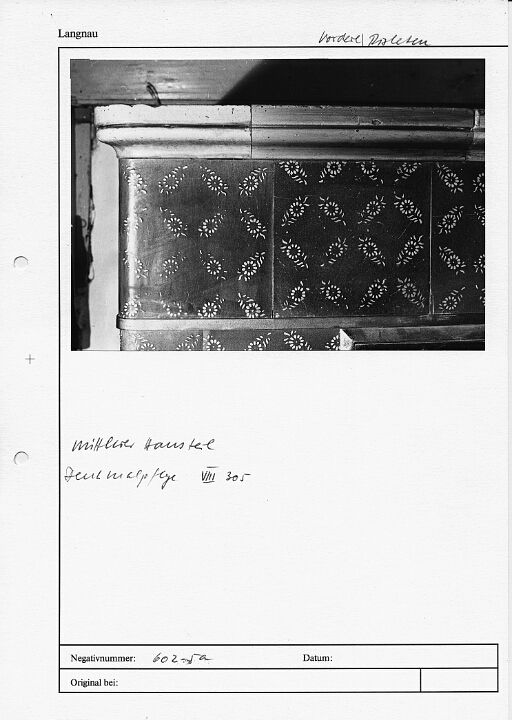 Langnau
Vordere Risleten
mittlerer Hausteil
Denkmalpflege VIII 305
Negativnummer: 602-5a
Datum:
Original bei: